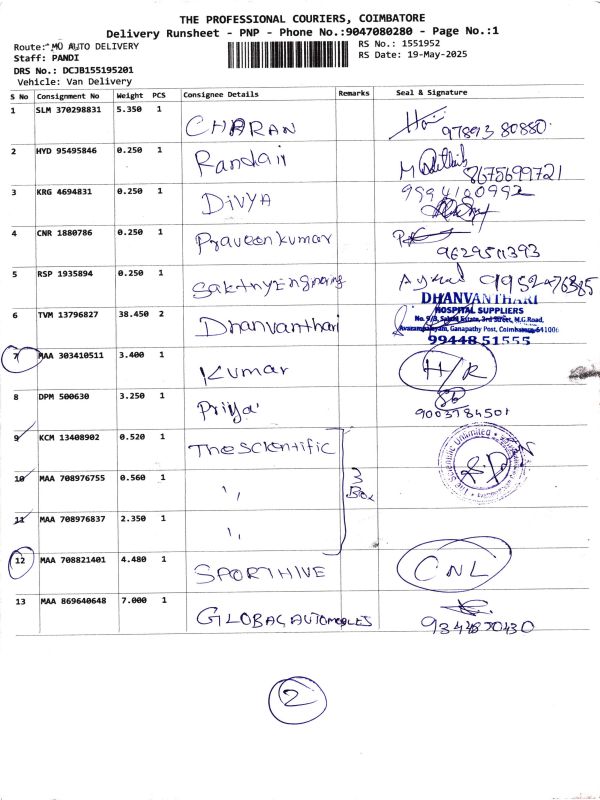 THE PROFESSIONAL COURIERS, COIMBATORE
Delivery Runsheet - PNP - Phone No.:9047080280 - Page No.:1
Route: MO AUTO DELIVERY
RS No.: 1551952
Staff: PANDI
RS Date: 19-May-2025
DRS No.: DCJB155195201
Vehicle: Van Delivery
S No Consignment No Weight PCS Consignee Details Remarks Seal & Signature
1 SLM 370298831 5.350 1 CHARAN 97893 80880
2 HYD 95495846 0.250 1 8675699721
3 KRG 4694831 0.250 1 DIVYA 9994180992
4 CNR 1880786 0.250 1 Praveenkumar 9629511393
5 RSP 1935894 0.250 1 SakthyEngineering
6 TVM 13796827 38.450 2 Dhanvanthari
DHANVANTHARI
HOSPITAL SUPPLIERS
3rd Street, M.G.Road,
Ganapathy Post, Coimbatore
99448 51555
7 MAA 303410511 3.400 1 Kumar H/R
8 DPM 500630 3.250 1 Priya 9003784501
9 KCM 13408902 0.520 1 The Scientific
The Scientific Unlimited
10 MAA 708976755 0.560 1 ,, 3 Box
11 MAA 708976837 2.350 1 ,,
12 MAA 708821401 4.480 1 SPORTHIVE CNL
13 MAA 869640648 7.000 1 GLOBAL AUTOMOBILES
2